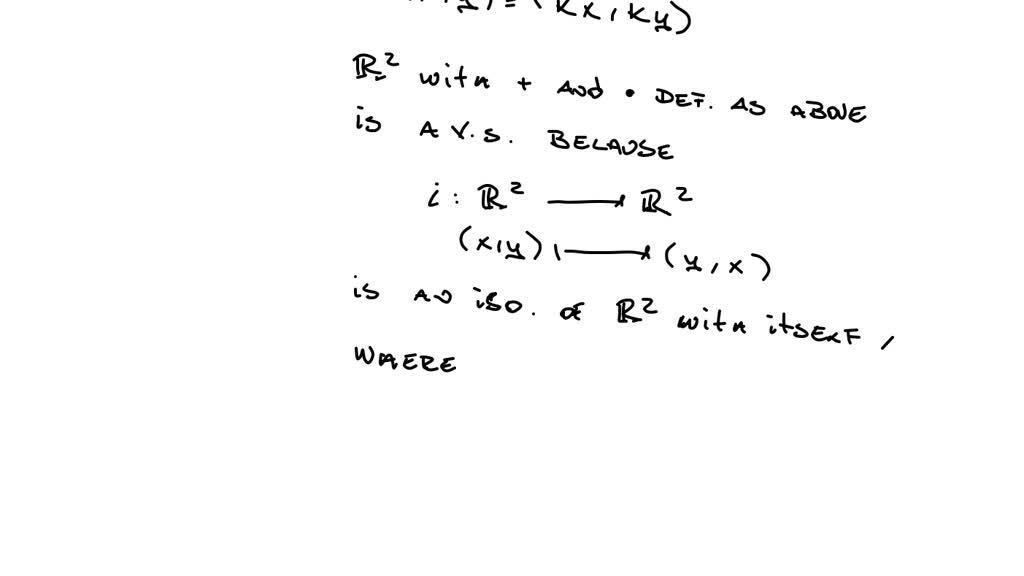 y) = (kx, ky)
ℝ² with + and • DEF. AS ABOVE
is A V.S. BECAUSE
i : ℝ² ⟶ ℝ²
(x,y) ⟼ (y, x)
is AN iso. of ℝ² with itSELF,
WHERE